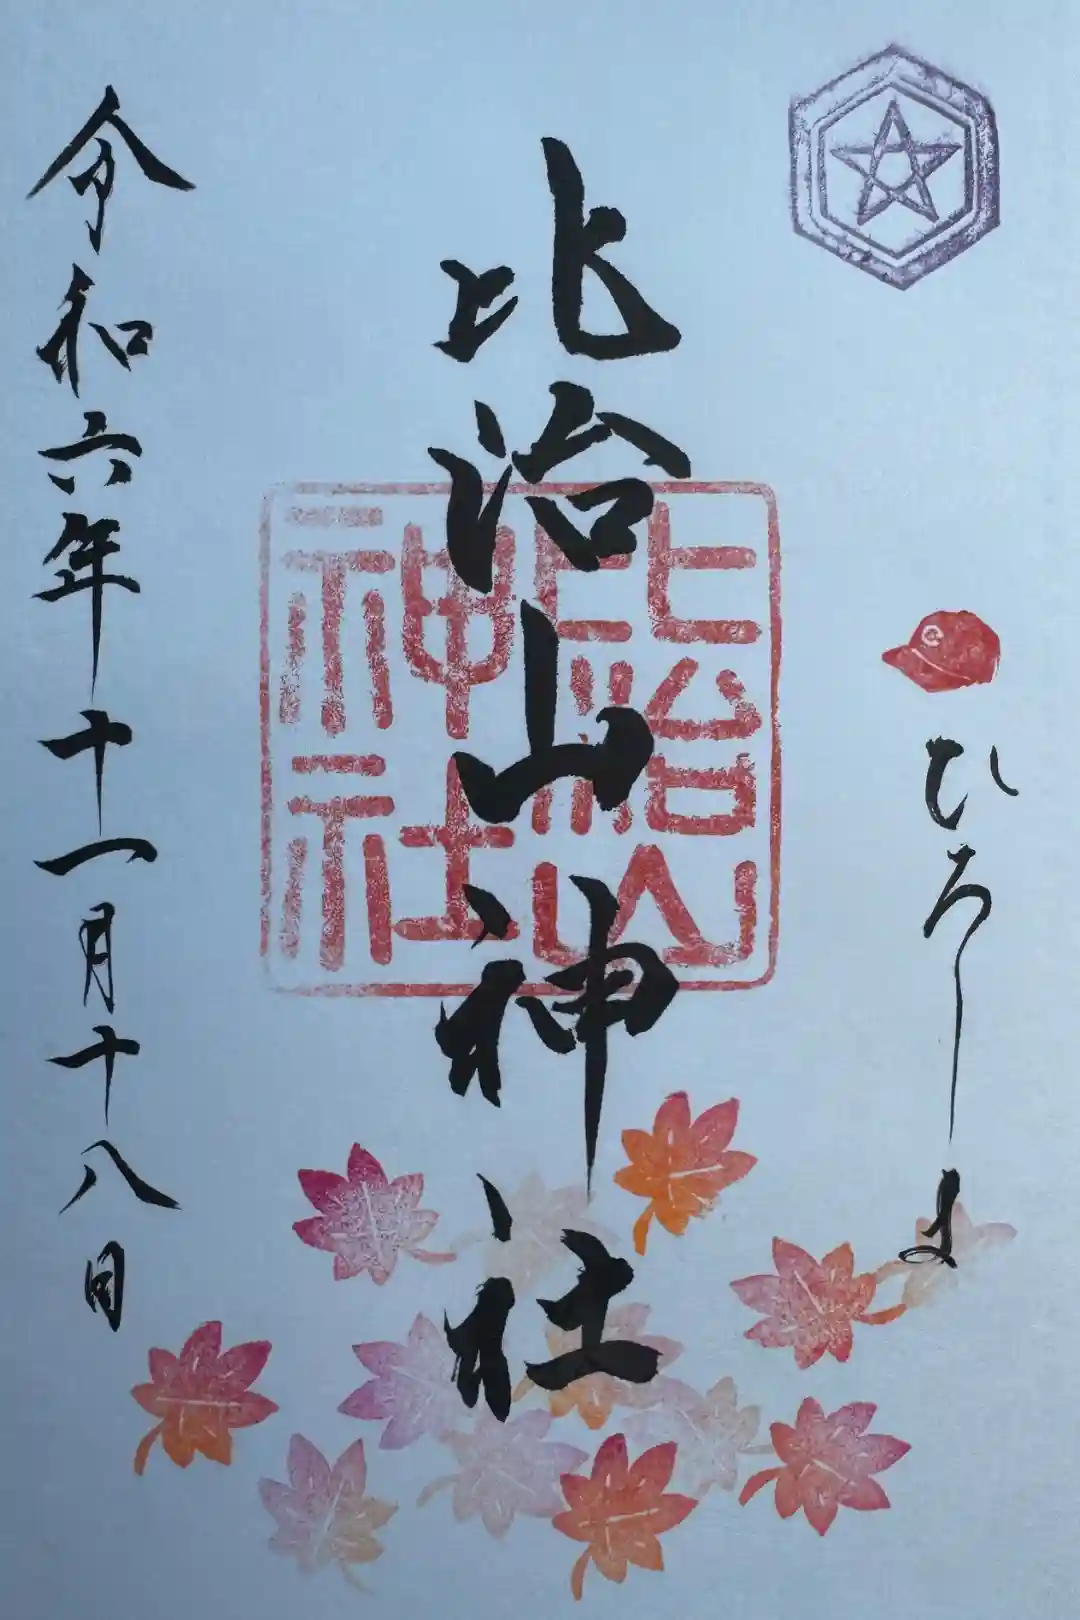 ひろしま
C
比治山神社
比治山
神社
令和六年十一月十八日